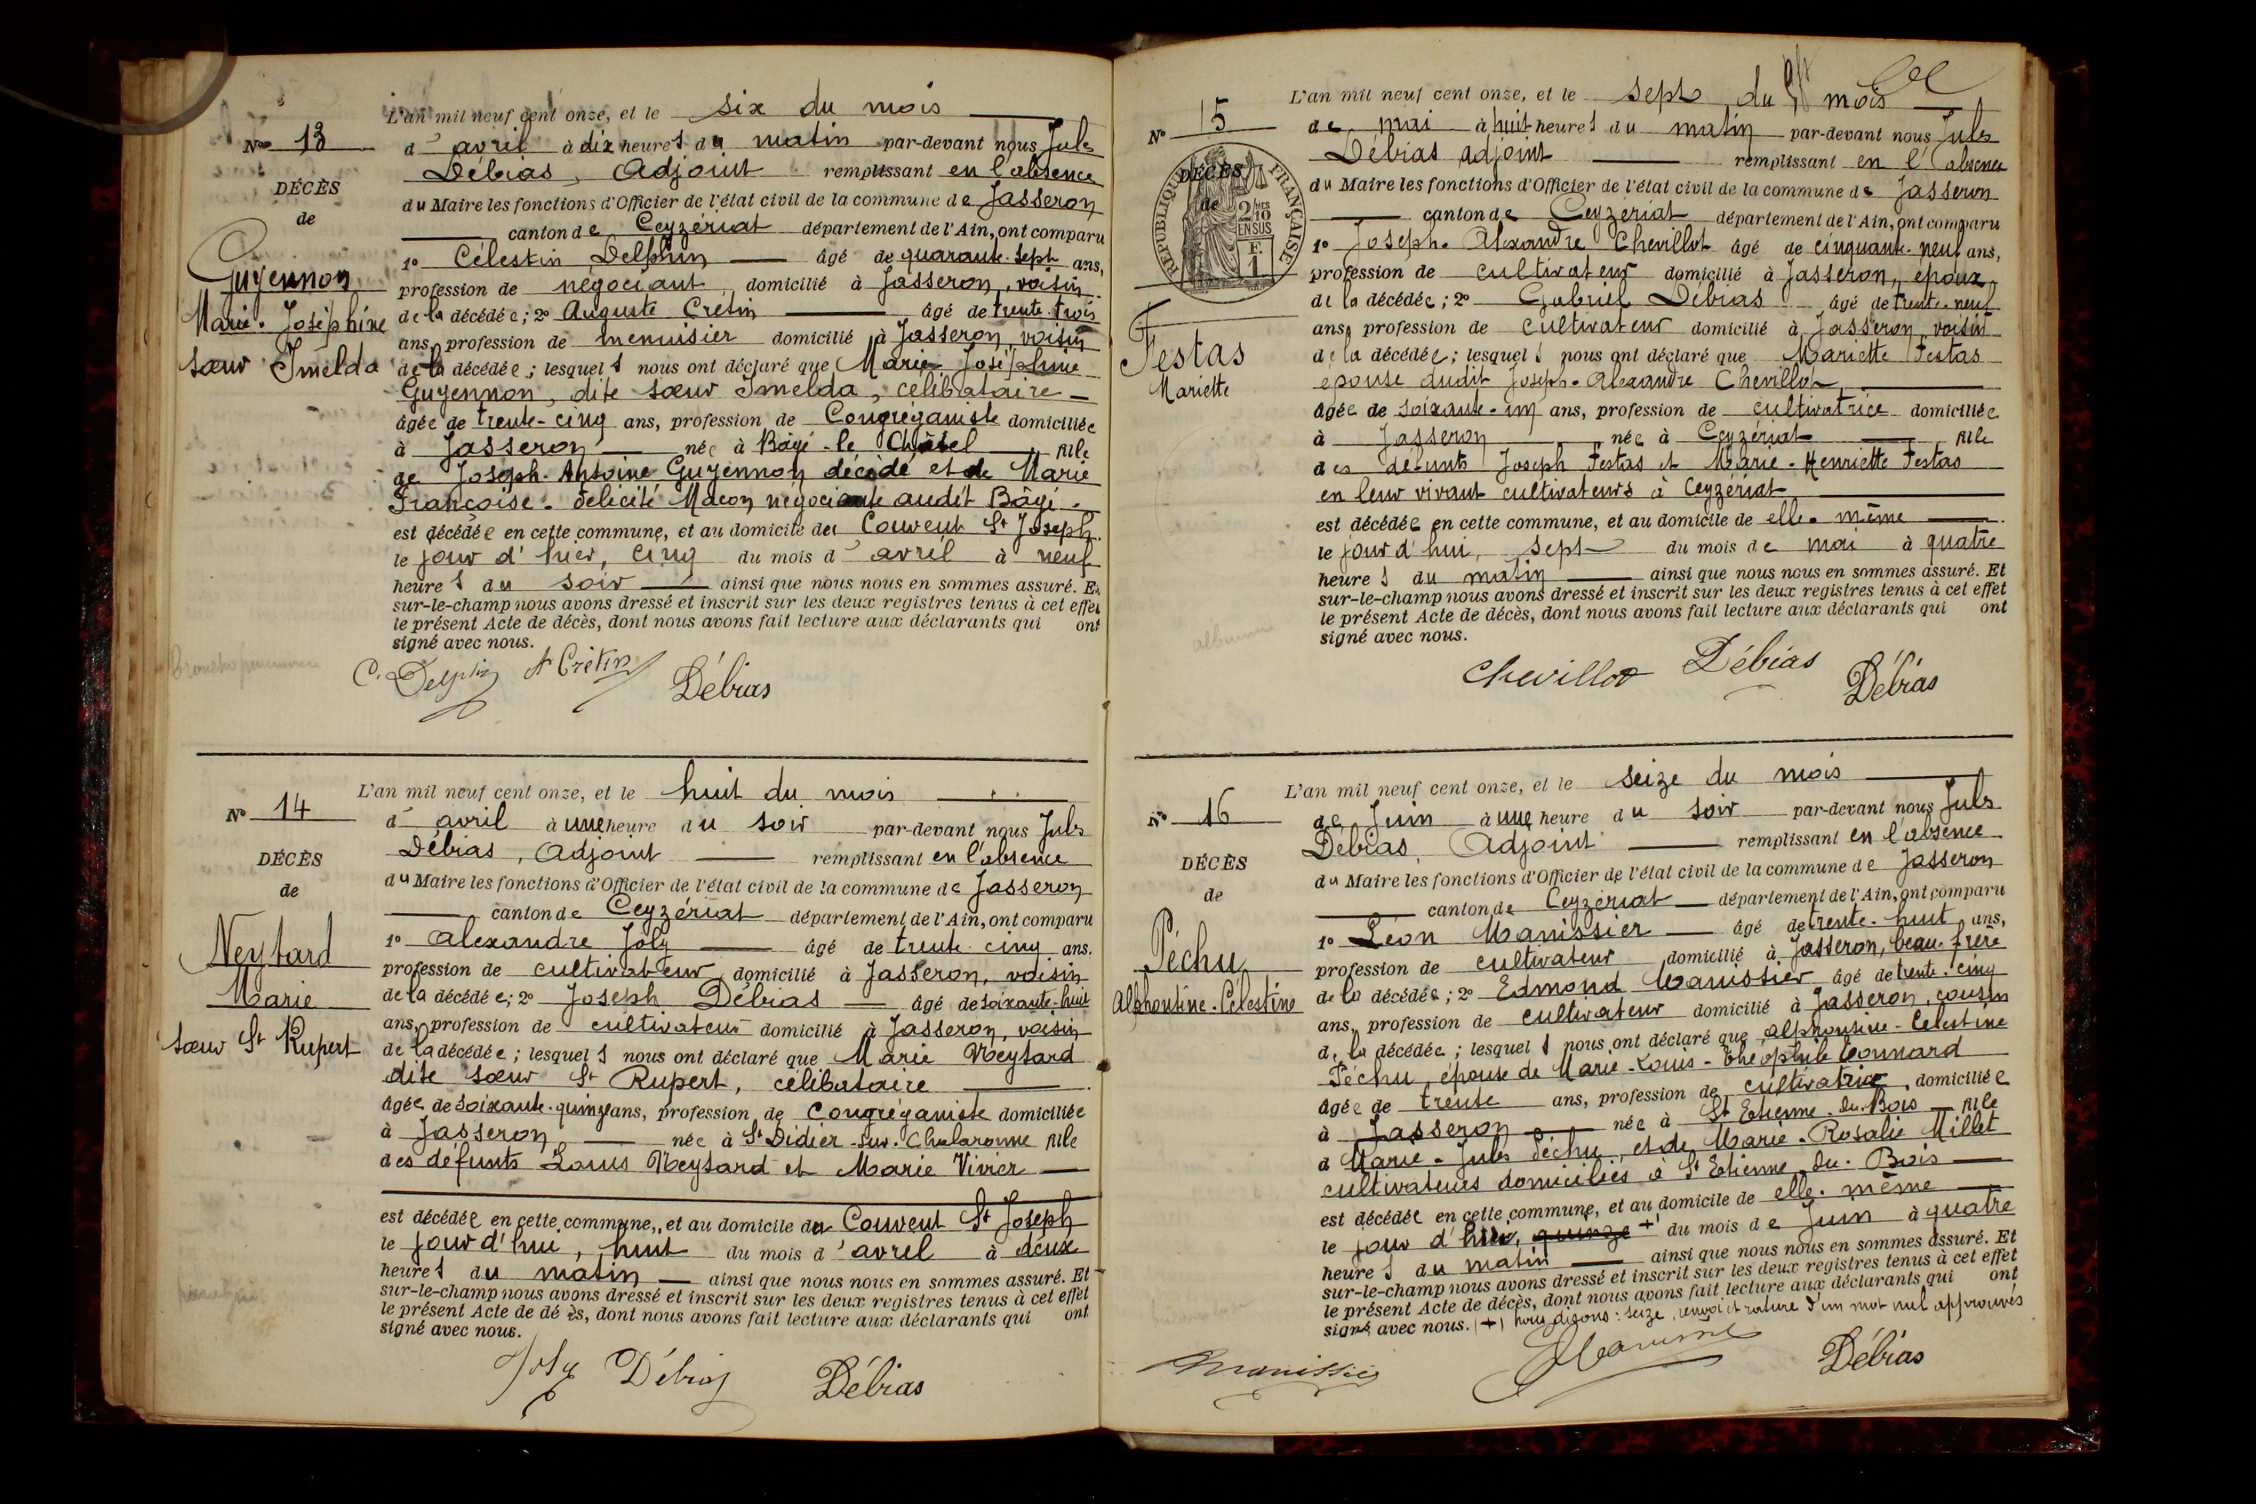 L'an mil neuf cent onze, et le six du mois
No 13
d'avril à dix heures du matin par-devant nous Jules
Débias, Adjoint remplissant en l'absence
DÉCÈS
du Maire les fonctions d'Officier de l'état civil de la commune de Jasseron
de
canton de Ceyzériat département de l'Ain, ont comparu
1o Célestin Delphin âgé de quarante-sept ans,
Guyennon
profession de négociant domicilié à Jasseron, voisin
Marie-Joséphine
de la décédée; 2o Auguste Cretin âgé de trente-trois
ans, profession de menuisier domicilié à Jasseron, voisin
sœur Imelda
de la décédée; lesquels nous ont déclaré que Marie Joséphine
Guyennon, dite sœur Imelda, célibataire
âgée de trente-cinq ans, profession de Congréganiste domiciliée
à Jasseron née à Bâgé-le Châtel fille
de Joseph-Antoine Guyennon décédé et de Marie
Françoise-Félicité Macon négociante audit Bâgé
est décédée en cette commune, et au domicile du Couvent St Joseph
le jour d'hier, cinq du mois d'avril à neuf
heures du soir ainsi que nous nous en sommes assuré. Et
sur-le-champ nous avons dressé et inscrit sur les deux registres tenus à cet effet
le présent Acte de décès, dont nous avons fait lecture aux déclarants qui ont
signé avec nous.
C. Delphin A Crétin Débias
L'an mil neuf cent onze, et le huit du mois
No 14
d'avril à une heure du soir par-devant nous Jules
Débias, Adjoint remplissant en l'absence
DÉCÈS
du Maire les fonctions d'Officier de l'état civil de la commune de Jasseron
de
canton de Ceyzériat département de l'Ain, ont comparu
1o Alexandre Joly âgé de trente-cinq ans.
Neytard
profession de cultivateur domicilié à Jasseron, voisin
Marie
de la décédée; 2o Joseph Débias âgé de soixante-huit
ans, profession de cultivateur domicilié à Jasseron, voisin
sœur St Rupert
de la décédée; lesquels nous ont déclaré que Marie Neytard
dite sœur St Rupert, célibataire
âgée de soixante-quinze ans, profession de Congréganiste domiciliée
à Jasseron née à St Didier-sur-Chalaronne fille
des défunts Louis Neytard et Marie Vivier
est décédée en cette commune, et au domicile du Couvent St Joseph
le jour d'hui, huit du mois d'avril à deux
heures du matin ainsi que nous nous en sommes assuré. Et
sur-le-champ nous avons dressé et inscrit sur les deux registres tenus à cet effet
le présent Acte de dé ès, dont nous avons fait lecture aux déclarants qui ont
signé avec nous.
Joly Débias Débias
L'an mil neuf cent onze, et le sept du mois
No 15
de mai à huit heures du matin par-devant nous Jules
Débias adjoint remplissant en l'absence
DÉCÈS
du Maire les fonctions d'Officier de l'état civil de la commune de Jasseron
de
RÉPUBLIQUE FRANÇAISE
2/10 EN SUS
canton de Ceyzériat département de l'Ain, ont comparu
1o Joseph-Alexandre Chevillot âgé de cinquante-neuf ans,
profession de cultivateur domicilié à Jasseron, époux
de la décédée; 2o Gabriel Débias âgé de trente-neuf
Festas
ans, profession de cultivateur domicilié à Jasseron, voisin
de la décédée; lesquels nous ont déclaré que Mariette Festas
Mariette
épouse dudit Joseph-Alexandre Chevillot
âgée de soixante-un ans, profession de cultivatrice domiciliée
à Jasseron née à Ceyzériat fille
des défunts Joseph Festas et Marie-Henriette Festas
en leur vivant cultivateurs à Ceyzériat
est décédée en cette commune, et au domicile de elle-même
le jour d'hui, sept du mois de mai à quatre
heures du matin ainsi que nous nous en sommes assuré. Et
sur-le-champ nous avons dressé et inscrit sur les deux registres tenus à cet effet
le présent Acte de décès, dont nous avons fait lecture aux déclarants qui ont
signé avec nous.
Chevillot Débias Débias
L'an mil neuf cent onze, et le seize du mois
No 16
de Juin à une heure du soir par-devant nous Jules
Débias, Adjoint remplissant en l'absence
DÉCÈS
du Maire les fonctions d'Officier de l'état civil de la commune de Jasseron
de
canton de Ceyzériat département de l'Ain, ont comparu
1o Léon Manissier âgé de trente-huit ans,
Péchu
profession de cultivateur domicilié à Jasseron, beau-frère
Alphontine-Célestine
de la décédée; 2o Edmond Manissier âgé de trente-cinq
ans, profession de cultivateur domicilié à Jasseron, cousin
de la décédée; lesquels nous ont déclaré que Alphontine-Célestine
Péchu, épouse de Marie-Louis-Théophile Connard
âgée de trente ans, profession de cultivatrice domiciliée
à Jasseron née à St Etienne-du-Bois fille
d Marie-Jules Péchu, et de Marie-Rosalie Millet
cultivateurs domiciliés à St Etienne-du-Bois
est décédée en cette commune, et au domicile de elle-même
le jour d'hui, quinze + du mois de Juin à quatre
heures du matin ainsi que nous nous en sommes assuré. Et
sur-le-champ nous avons dressé et inscrit sur les deux registres tenus à cet effet
le présent Acte de décès, dont nous avons fait lecture aux déclarants qui ont
signé avec nous. (+) nous disons: seize, renvoi et rature d'un mot nul approuvés
Manissier Débias